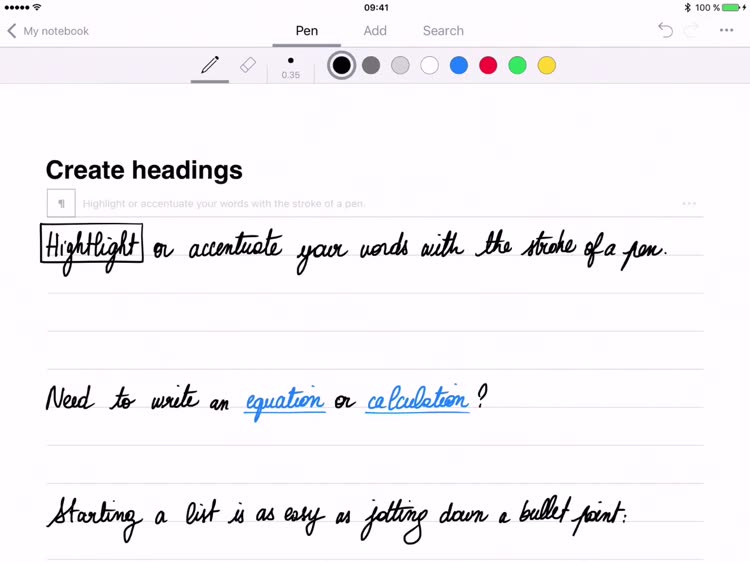 09:41
100 %
My notebook
Pen
Add
Search
0.35
Create headings
¶ Highlight or accentuate your words with the stroke of a pen.
Hightlight or accentuate your words with the stroke of a pen.
Need to write an equation or calculation?
Starting a list is as easy as jotting down a bullet point: